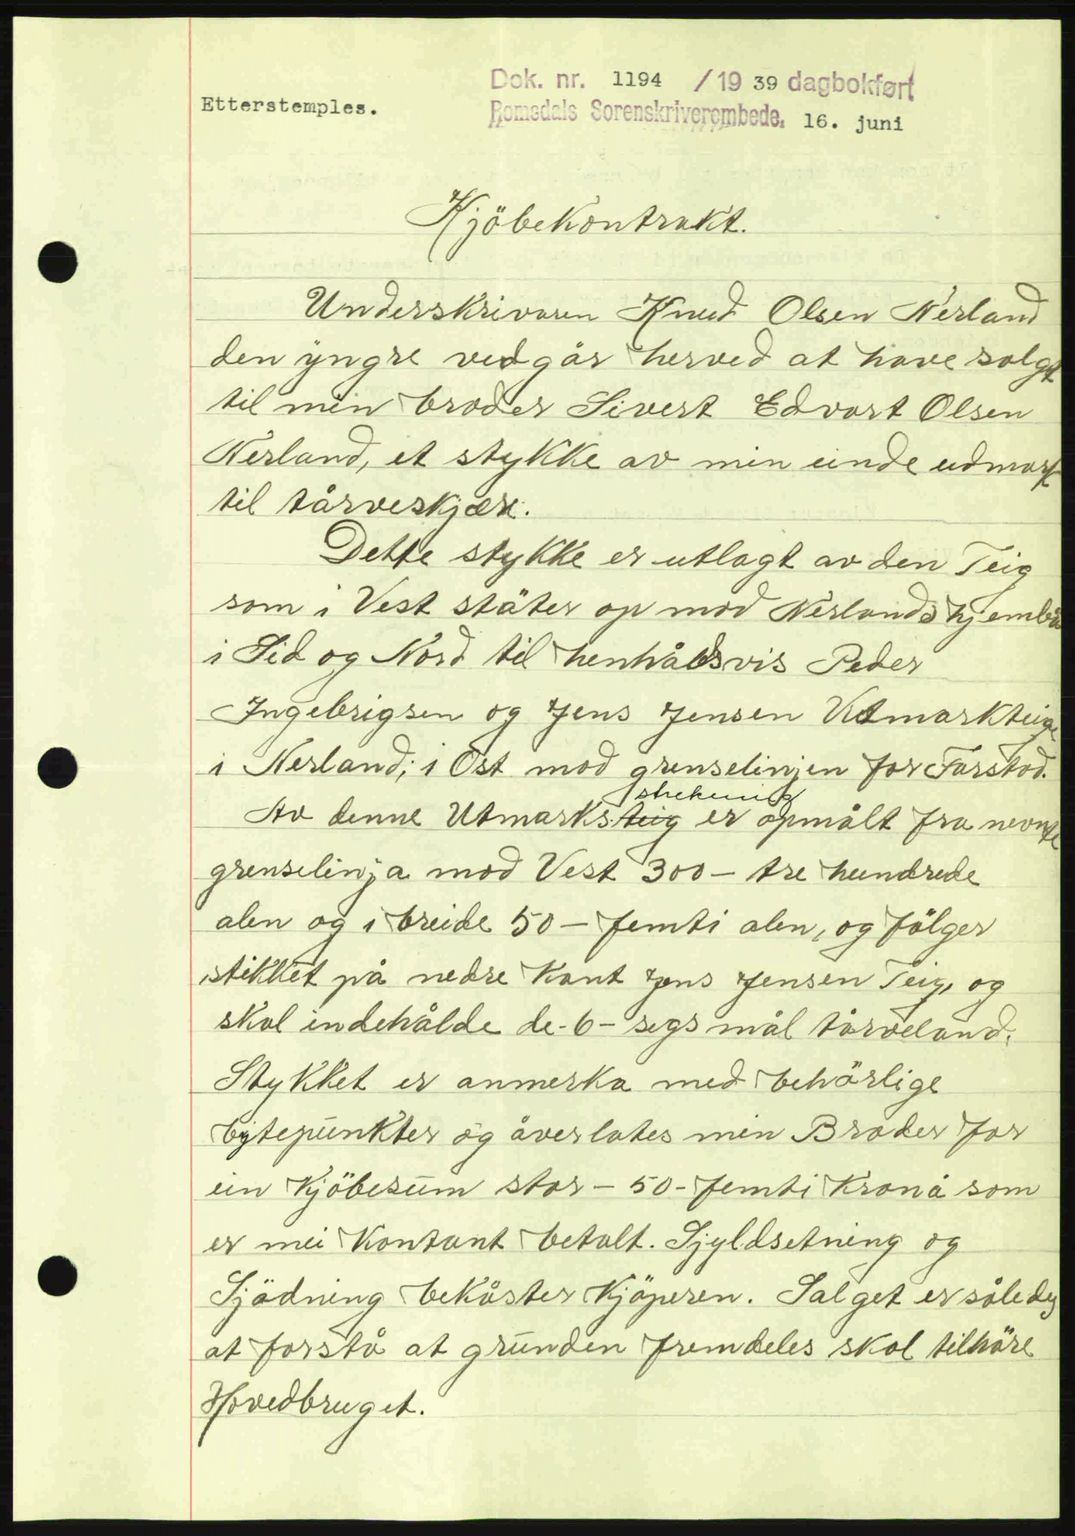 Dok. nr. 1194 / 19 39 dagbokført
Etterstemples.
Romsdals Sorenskriverembede. 16. juni
Kjöbekontrakt.
Underskrivaren Knud Olsen Nerland
den yngre vedgår herved at have solgt
til min broder Sivert Edvart Olsen
Nerland, et stykke av min einde udmark
til tårveskjær.
Dette stykke er utlagt av den Teig
som i Vest stöter op mod Nerlands hjembö
i Sid og Nord til henhåldsvis Peder
Ingebrigsen og Jens Jensen Utmarkteige
i Nerland; i Öst mod grenselinjen for Farstad.
strekning
Av denne Utmarksteig er opmålt fra nevnte
grenselinja mod Vest 300 – tre hundrede
alen og i breide 50 – femti alen, og fölger
stikket på nedre Kant Jens Jensen Teig, og
skal indehålde de - 6 - segs mål tårveland.
Stykket er anmerka med behörlige
bytepunkter og åverlates min Broder for
ein Kjöbesum stor – 50 - femti Kronå som
er mei Kontant betalt. Sjyldsetning og
Sjödning bekåster Kjöperen. Salget er således
at forstå at grunden fremdeles skal tilhöre
Hovedbruget.